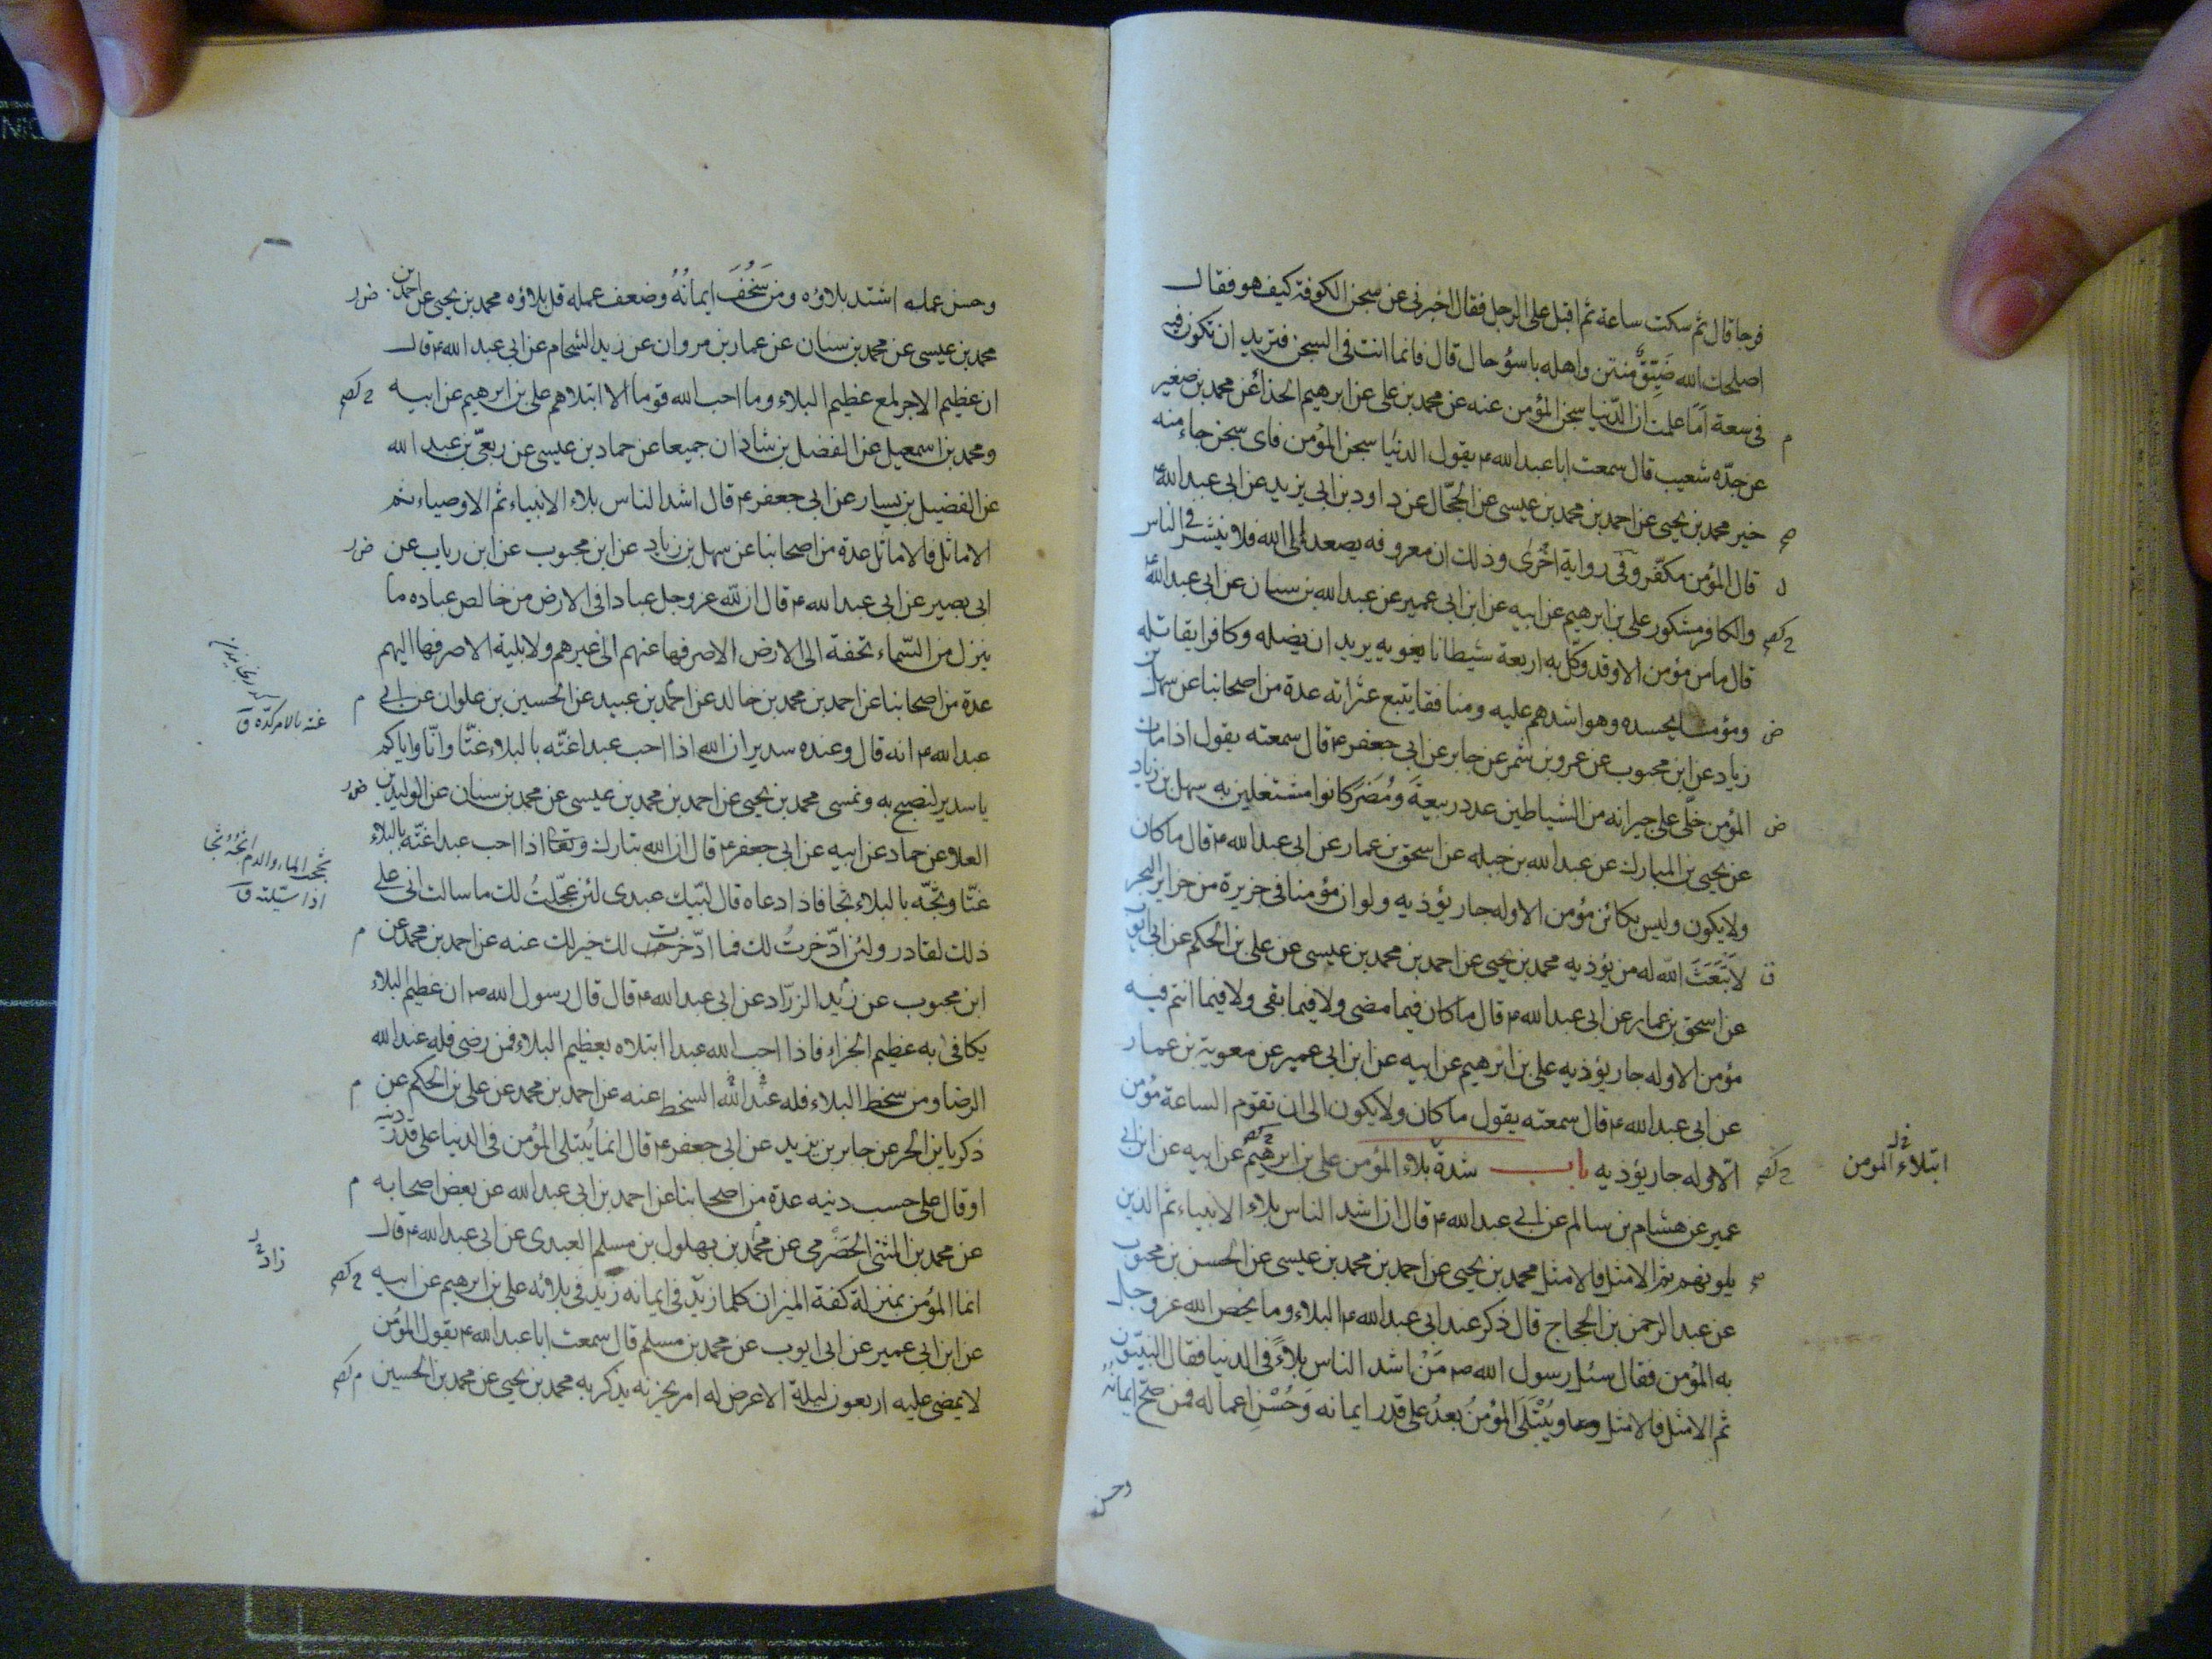 فرجا قال ثم سكت ساعة ثم اقبل على الرجل فقال اخبرنى عن سجن الكوفة كيف هو فقال
اصلحك الله ضَيِّقٌ منتن واهله باسوُ حال قال فانما انت فى السجن فتريد ان تكون فيه
فى سعة اَمَا علمت ان الدّنيا سجن المؤمن عنه عن محمد بن على عن ابرهيم الحذاءُ عن محمد بن صغير
عن جدّه شعيب قال سمعت ابا عبد الله ع يقول الدنيا سجن المؤمن فاى سجن جاء منه
خير محمد بن يحيى عن احمد بن محمد بن عيسى عن الحجّال عن داود بن ابى يزيد عن ابى عبد الله ع
قال المؤمن مكفّر وفى رواية اُخْرىٰ وذلك ان معروفه يصعد الى الله فلا ينشر فى الناس
والكافر مشكور على بن ابرهيم عن ابيه عن ابن ابى عمير عن عبد الله بن سنان عن ابى عبد الله ع
قال ما من مؤمن الا وقد وكّل به اربعة شيطانا يغويه يريد ان يضله وكافرا يقاتله
ومؤمنا يحسده وهو اشدهم عليه ومنافقا يتبع عثراته عدة من اصحابنا عن سهل بن
زياد عن ابن محبوب عن عمرو بن شمر عن جابر عن ابى جعفر ع قال سمعته يقول اذا مات
المؤمن خلّى على جيرانه من الشياطين عدد ربيعةَ ومُضَرَ كانوا مشتغلين به سهل بن زياد
عن يحيى بن المبارك عن عبد الله بن جبله عن اسحق بن عمار عن ابى عبد الله ع قال ما كان
ولا يكون وليس بكائن مؤمن الا وله جار يؤذيه ولو ان مؤمنا فى جزيرة من جزاير البحر
لابْتَعَثَ الله له من يؤذيه محمد بن يحيى عن احمد بن محمد بن عيسى عن على بن الحكم عن ابى ايوب
عن اسحق بن عمار عن ابى عبد الله ع قال ما كان فيما مضى ولا فيما بقى ولا فيما انتم فيه
مؤمن الا وله جار يؤذيه على بن ابرهيم عن ابيه عن ابن ابى عمير عن معوية بن عمار
عن ابى عبد الله ع قال سمعته يقول ما كان ولا يكون الى ان تقوم الساعة مؤمن
الّا وله جار يؤذيه باب شدة بلاء المؤمن على بن ابرهيم عن ابيه عن ابن ابى
ابتلاء المومن
عمير عن هشام بن سالم عن ابى عبد الله ع قال ان اشد الناس بلاء الانبياء ثم الذين
يلونهم ثم الامثل فالامثل محمد بن يحيى عن احمد بن محمد بن عيسى عن الحسن بن محبوب
عن عبد الرحمن بن الحجاج قال ذكر عند ابى عبد الله ع البلاء وما يخص الله عز وجل
به المؤمن فقال سئل رسول الله ص مَنْ اشد الناس بلاءً فى الدنيا فقال النبيّون
ثم الامثل فالامثل ويُبْتَلَى المؤمنُ بعدُ على قدر ايمانه وَحُسْنِ اعماله فمن صحّ ايمانُهُ
وحسن
وحسن عمله اشتد بلاؤه ومن سَخُفَ ايمانُهُ وضعف عمله قل بلاؤه محمد بن يحيى عن احمد بن
محمد بن عيسى عن محمد بن سنان عن عمار بن مروان عن زيد الشحام عن ابى عبد الله ع قال
ان عظيم الاجر لمع عظيم البلاء وما احب الله قوما الا ابتلاهم على بن ابرهيم عن ابيه
ومحمد بن اسمعيل عن الفضل بن شاذان جميعا عن حماد بن عيسى عن ربعىّ بن عبد الله
عن الفضيل بن يسار عن ابى جعفر ع قال اشد الناس بلاء الانبياء ثم الاوصياء ثم
الاماثل فالاماثل عدة من اصحابنا عن سهل بن زياد عن ابن محبوب عن ابن رياب عن
ابى بصير عن ابى عبد الله ع قال ان لله عز وجل عبادا فى الارض من خالص عباده ما
ينزل من السّماء تحفة الى الارض الا صرفها عنهم الى غيرهم ولا بلية الا صرفها اليهم
عدة من اصحابنا عن احمد بن محمد بن خالد عن احمد بن عبيد عن الحسين بن علوان عن ابى
غته بالامر كدّه ق
عبد الله ع انه قال وعنده سدير ان الله اذا احب عبدا غتّه بالبلاء غتّا وانّا واياكم
يا سدير لنصبح به ونمسى محمد بن يحيى عن احمد بن محمد بن عيسى عن محمد بن سنان عن الوليد بن
العلاء عن حماد عن ابيه عن ابى جعفر ع قال ان الله تبارك وتعالى اذا احب عبدا غتّه بالبلاء
اذا سيّلته ق
غتّا وثجّه بالبلاء ثجا فاذا دعاه قال لبّيك عبدى لئن عجّلتُ لك ما سالت انى على
ذلك لقادر ولئن ادّخرتُ لك فما ادّخرت لك خير لك عنه عن احمد بن محمد عن
ابن محبوب عن زيد الزرّاد عن ابى عبد الله ع قال قال رسول الله ص ان عظيم البلاء
يكافى به عظيم الجزاء فاذا احب الله عبدا ابتلاه بعظيم البلاء فمن رضى فله عند الله
الرضا ومن سخط البلاء فله عند الله السخط عنه عن احمد بن محمد عن على بن الحكم عن
زكريا بن الحر عن جابر بن يزيد عن ابى جعفر ع قال انما يُبتلى المؤمن فى الدنيا على قدر دينه
او قال على حسب دينه عدة من اصحابنا عن احمد بن ابى عبد الله عن بعض اصحابه
عن محمد بن المثنى الحَضْرمى عن محمد بن بهلول بن مسلم العبدى عن ابى عبد الله ع قال
انما المؤمن بمنزلة كفة الميزان كلما زيد فى ايمانه زيد فى بلائه على بن ابرهيم عن ابيه
عن ابن ابى عمير عن ابى ايوب عن محمد بن مسلم قال سمعت ابا عبد الله ع يقول المؤمن
لا يمضى عليه اربعون ليلة الا عرض له امر يحزنه يذكر به محمد بن يحيى عن محمد بن الحسين